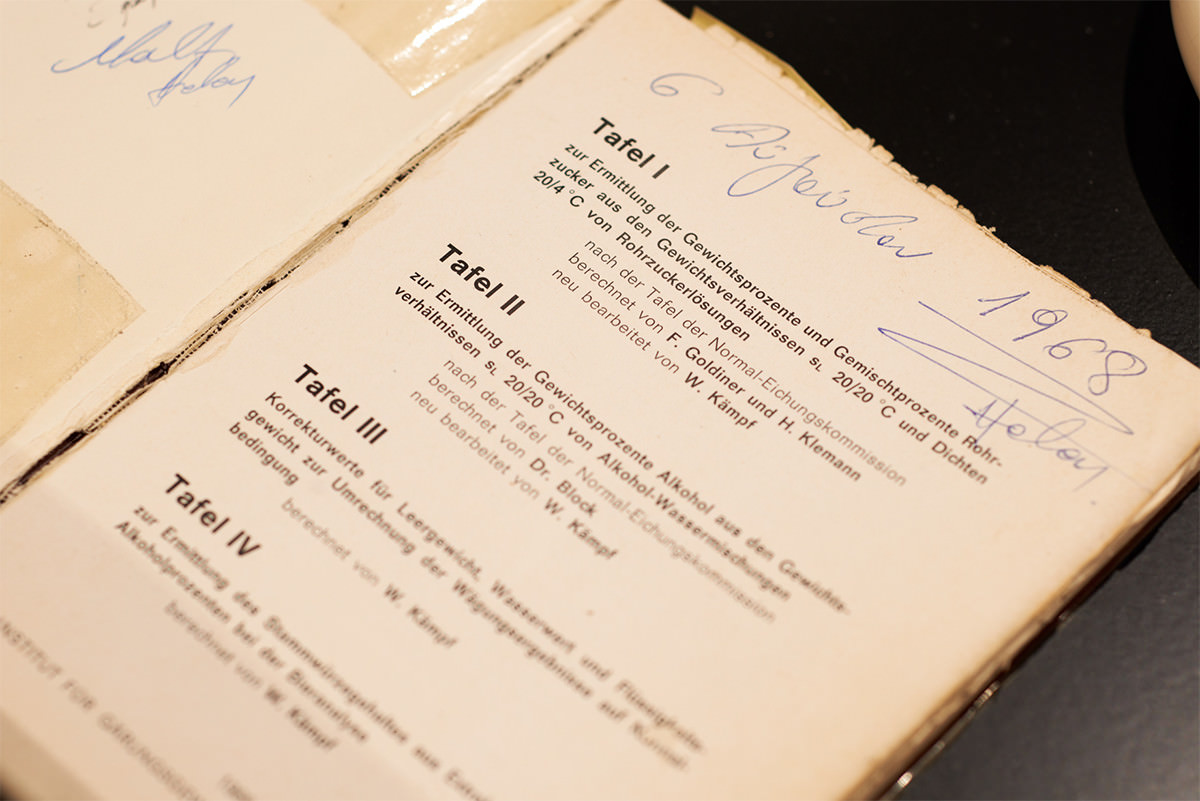 6
1968
Tafel I
zur Ermittlung der Gewichtsprozente und Gemischtprozente Rohr-
zucker aus den Gewichtsverhältnissen sL 20/20 °C und Dichten
20/4 °C von Rohrzuckerlösungen
nach der Tafel der Normal-Eichungskommission
berechnet von F. Goldiner und H. Klemann
neu bearbeitet von W. Kämpf
Tafel II
zur Ermittlung der Gewichtsprozente Alkohol aus den Gewichts-
verhältnissen sL 20/20 °C von Alkohol-Wassermischungen
nach der Tafel der Normal-Eichungskommission
berechnet von Dr. Block
neu bearbeitet von W. Kämpf
Tafel III
Korrekturwerte für Leergewicht, Wasserwert und Flüssigkeits-
gewicht zur Umrechnung der Wägungsergebnisse auf Normal-
bedingung
berechnet von W. Kämpf
Tafel IV
zur Ermittlung des Stammwürzegehaltes aus
Alkoholprozenten bei der Bieranalyse
berechnet von W. Kämpf
NSTITUT FÜR